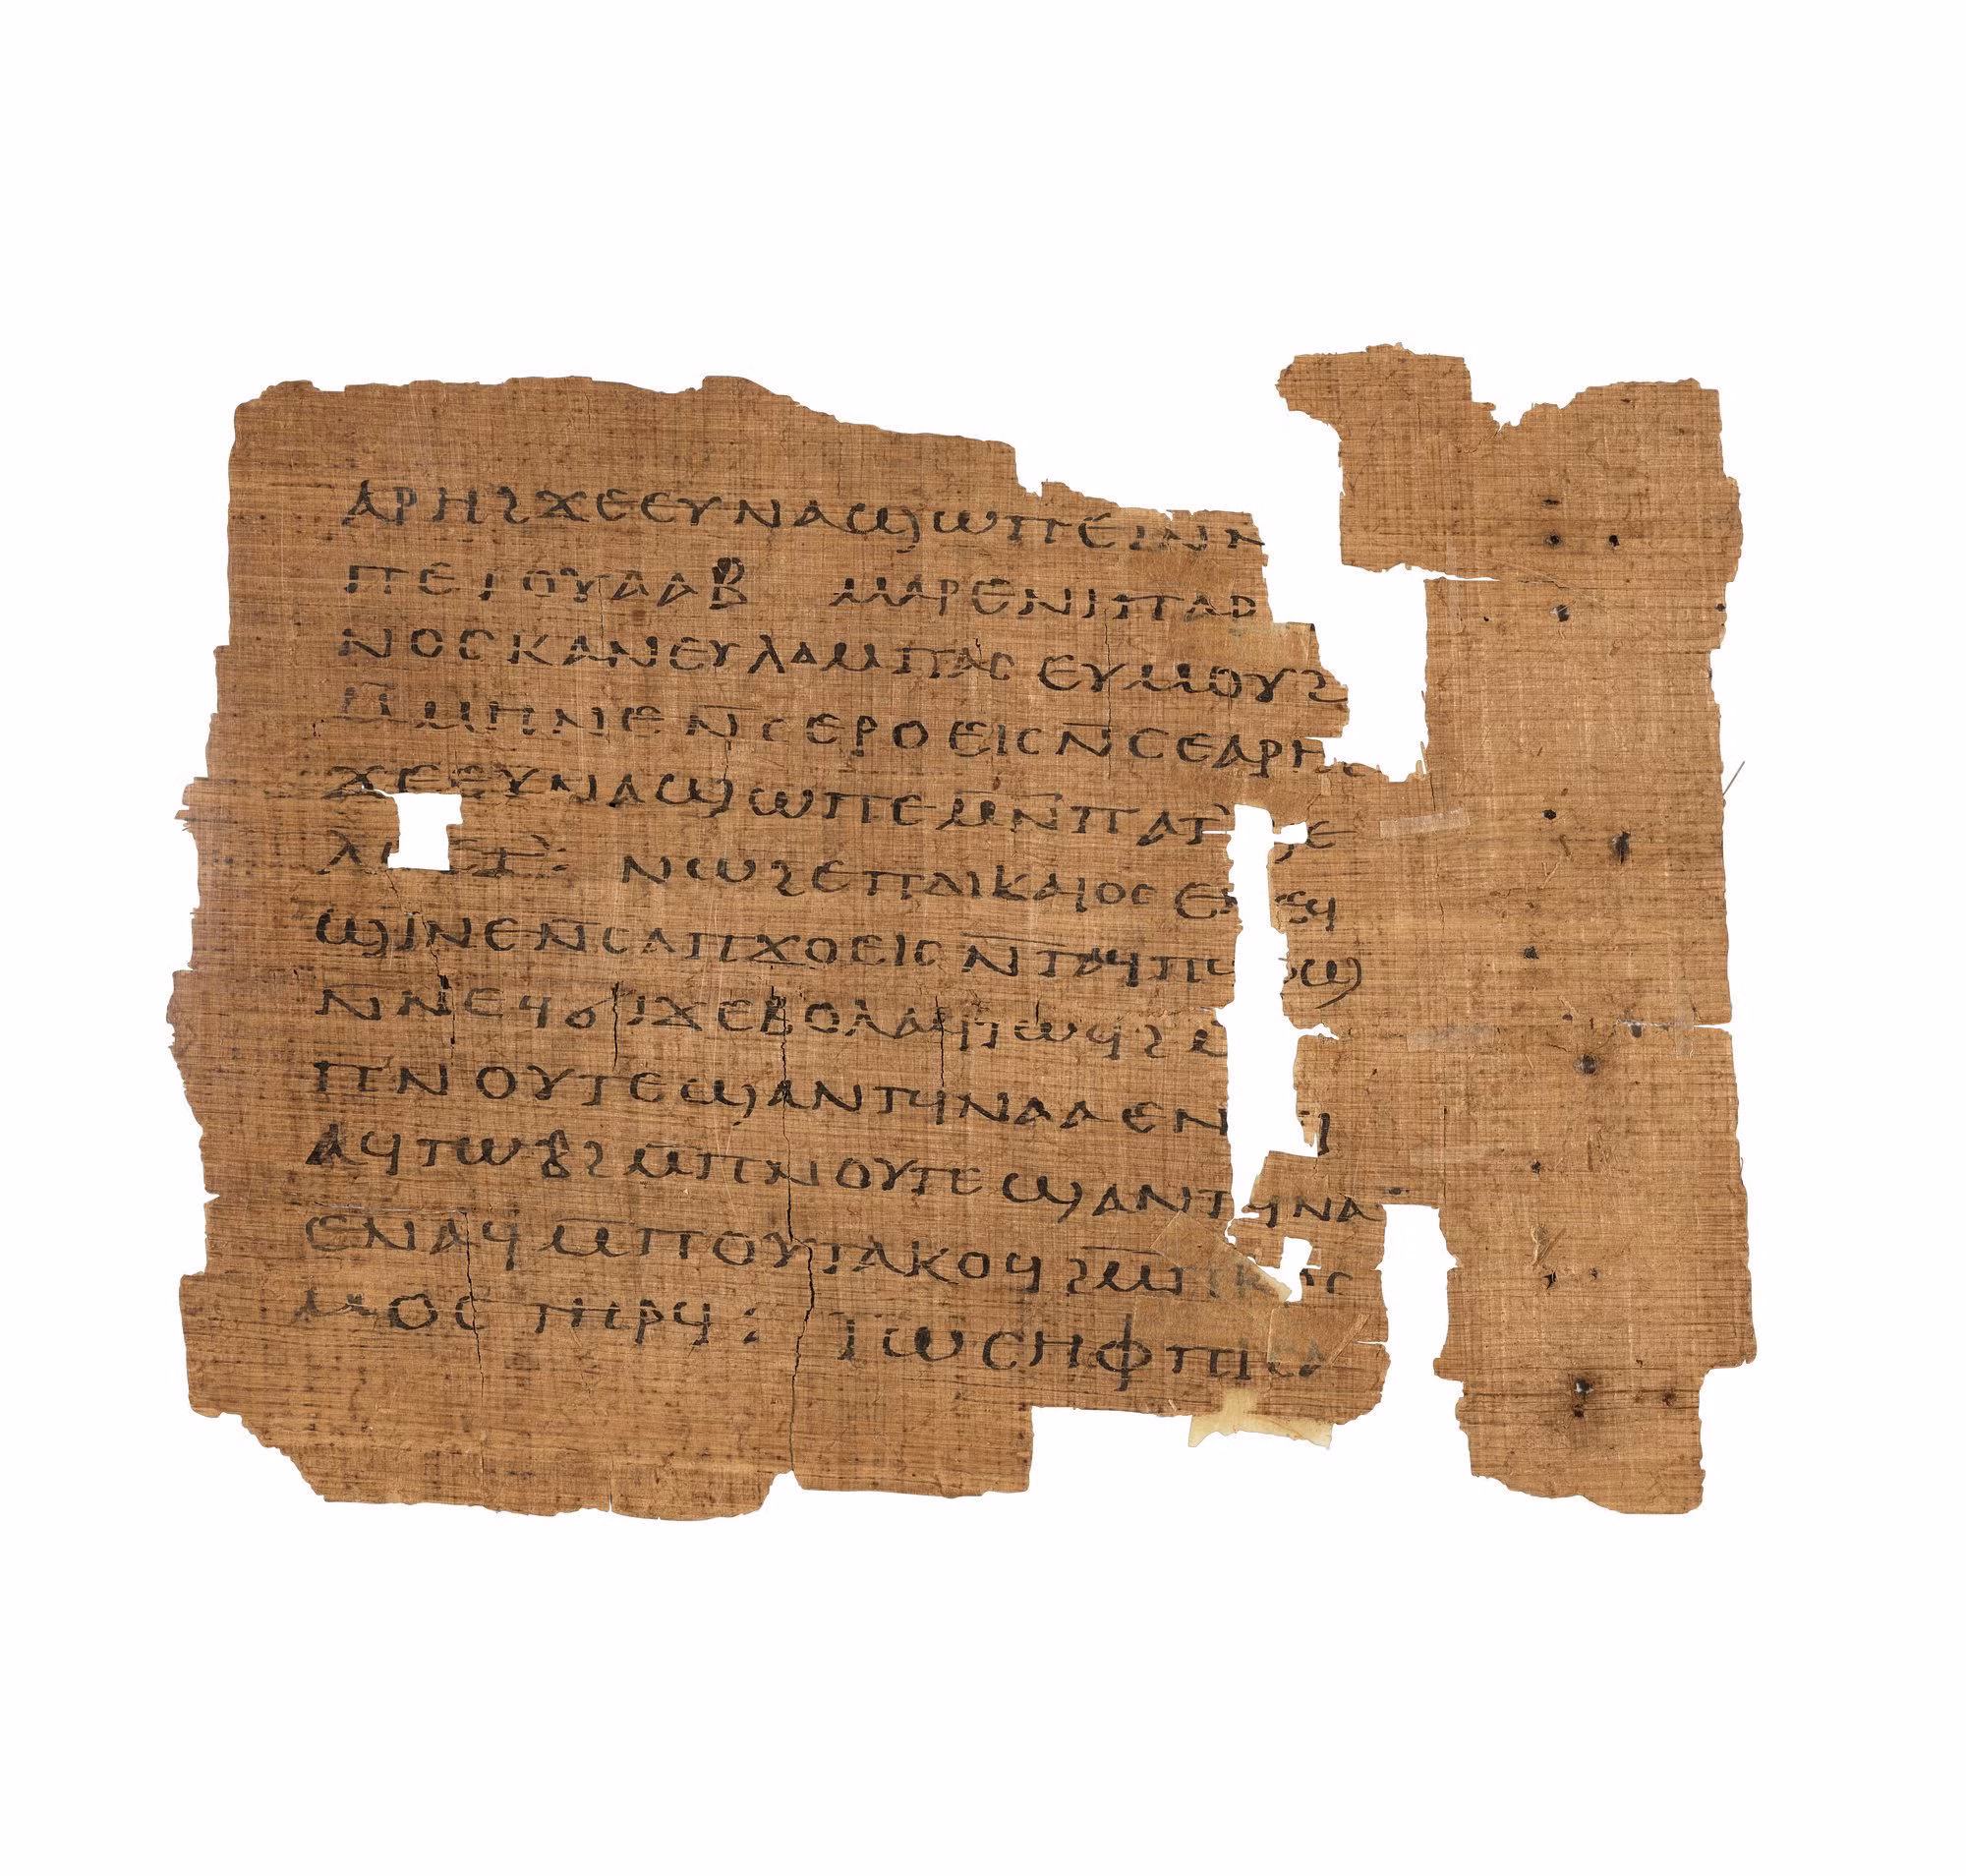 ⲁⲣⲏϩϫⲉⲉⲩⲛⲁϣⲱⲡⲉⲙⲛ̄
ⲡⲉⲧⲟⲩⲁⲁⲃ ⲙⲁⲣⲉⲛⲓⲡⲁⲣ
ⲛⲟⲥⲕⲁⲛⲉⲩⲗⲁⲙⲡⲁⲥ ⲉⲩⲙⲟⲩϩ
ⲙ̄ⲙⲏⲛⲉⲛ̄ⲥⲉⲣⲟⲉⲓⲥⲛ̄ⲥⲉⲁⲣⲏ
ϫⲉⲉⲩⲛⲁϣⲱⲡⲉⲙⲛ̄ⲡⲁⲅ
ⲛⲱϩⲉⲡⲇⲓⲕⲁⲓⲟⲥ
ϣⲓⲛⲉⲛ̄ⲥⲁⲡϫⲟⲉⲓⲥ ⲛ̄ⲧⲁϥⲡⲱⲣϣ
ⲛ̄ⲛⲉϥϭⲓϫⲉⲃⲟⲗⲁϥⲧⲱⲃϩ ⲙ̄
ⲡⲛⲟⲩⲧⲉϣⲁⲛⲧϥ̄ⲛⲁⲁⲉⲛⲁϥ
ⲁϥⲧⲱⲃϩⲙ̄ⲡⲛⲟⲩⲧⲉϣⲁⲛⲧϥⲛⲁ
ⲉⲛⲁϥⲙ̄ⲡⲟⲩⲧⲁⲕⲟϥϩⲙ̄ⲡⲕⲟⲥ
ⲙⲟⲥ ⲧⲏⲣϥ : ⲓⲱⲥⲏⲫⲡⲓⲥⲁ